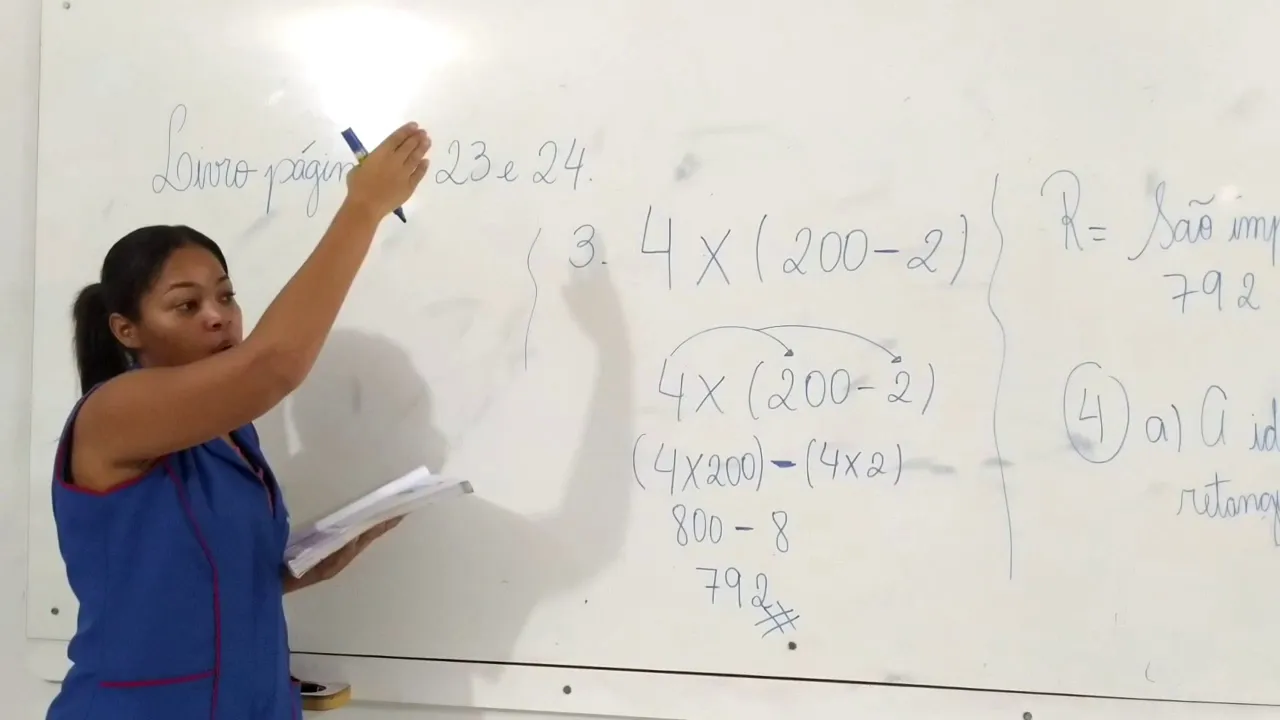 Livro página 23 e 24.
3. 4 x (200 - 2)
4 x (200 - 2)
(4 x 200) - (4 x 2)
800 - 8
792
R = São imp
792
4 a) A id
retang